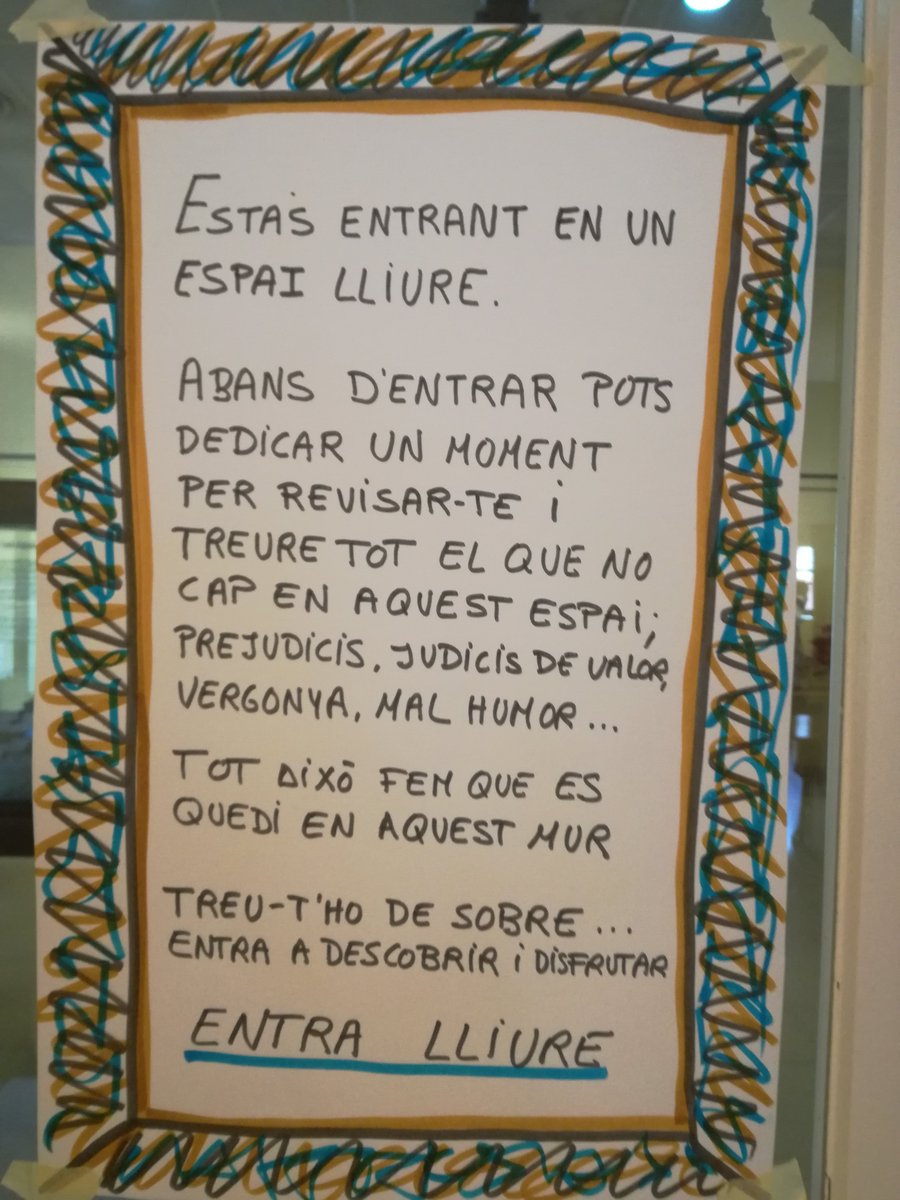 ESTÀS ENTRANT EN UN
ESPAI LLIURE.
ABANS D'ENTRAR POTS
DEDICAR UN MOMENT
PER REVISAR-TE i
TREURE TOT EL QUE NO
CAP EN AQUEST ESPAI;
PREJUDICIS, JUDICIS DE VALOR,
VERGONYA, MAL HUMOR...
TOT AIXÒ FEM QUE ES
QUEDI EN AQUEST MUR
TREU-T'HO DE SOBRE...
ENTRA A DESCOBRIR i DISFRUTAR
ENTRA LLIURE